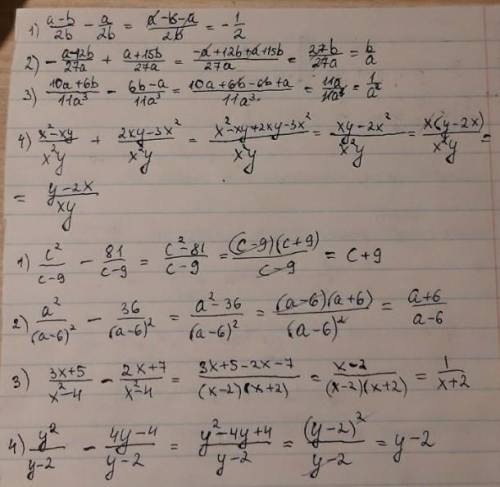 1) (a-b)/2b - a/2b = (a-b-a)/2b = -1/2
2) -(a-12b)/27a + (a+15b)/27a = (-a+12b+a+15b)/27a = 27b/27a = b/a
3) (10a+6b)/11a³ - (6b-a)/11a³ = (10a+6b-6b+a)/11a³ = 11a/11a³ = 1/a²
4) (x²-xy)/x²y + (2xy-3x²)/x²y = (x²-xy+2xy-3x²)/x²y = (xy-2x²)/x²y = x(y-2x)/x²y =
= (y-2x)/xy
1) c²/(c-9) - 81/(c-9) = (c²-81)/(c-9) = (c-9)(c+9)/(c-9) = c+9
2) a²/(a-6)² - 36/(a-6)² = (a²-36)/(a-6)² = (a-6)(a+6)/(a-6)² = (a+6)/(a-6)
3) (3x+5)/(x²-4) - (2x+7)/(x²-4) = (3x+5-2x-7)/(x-2)(x+2) = (x-2)/(x-2)(x+2) = 1/(x+2)
4) y²/(y-2) - (4y-4)/(y-2) = (y²-4y+4)/(y-2) = (y-2)²/(y-2) = y-2